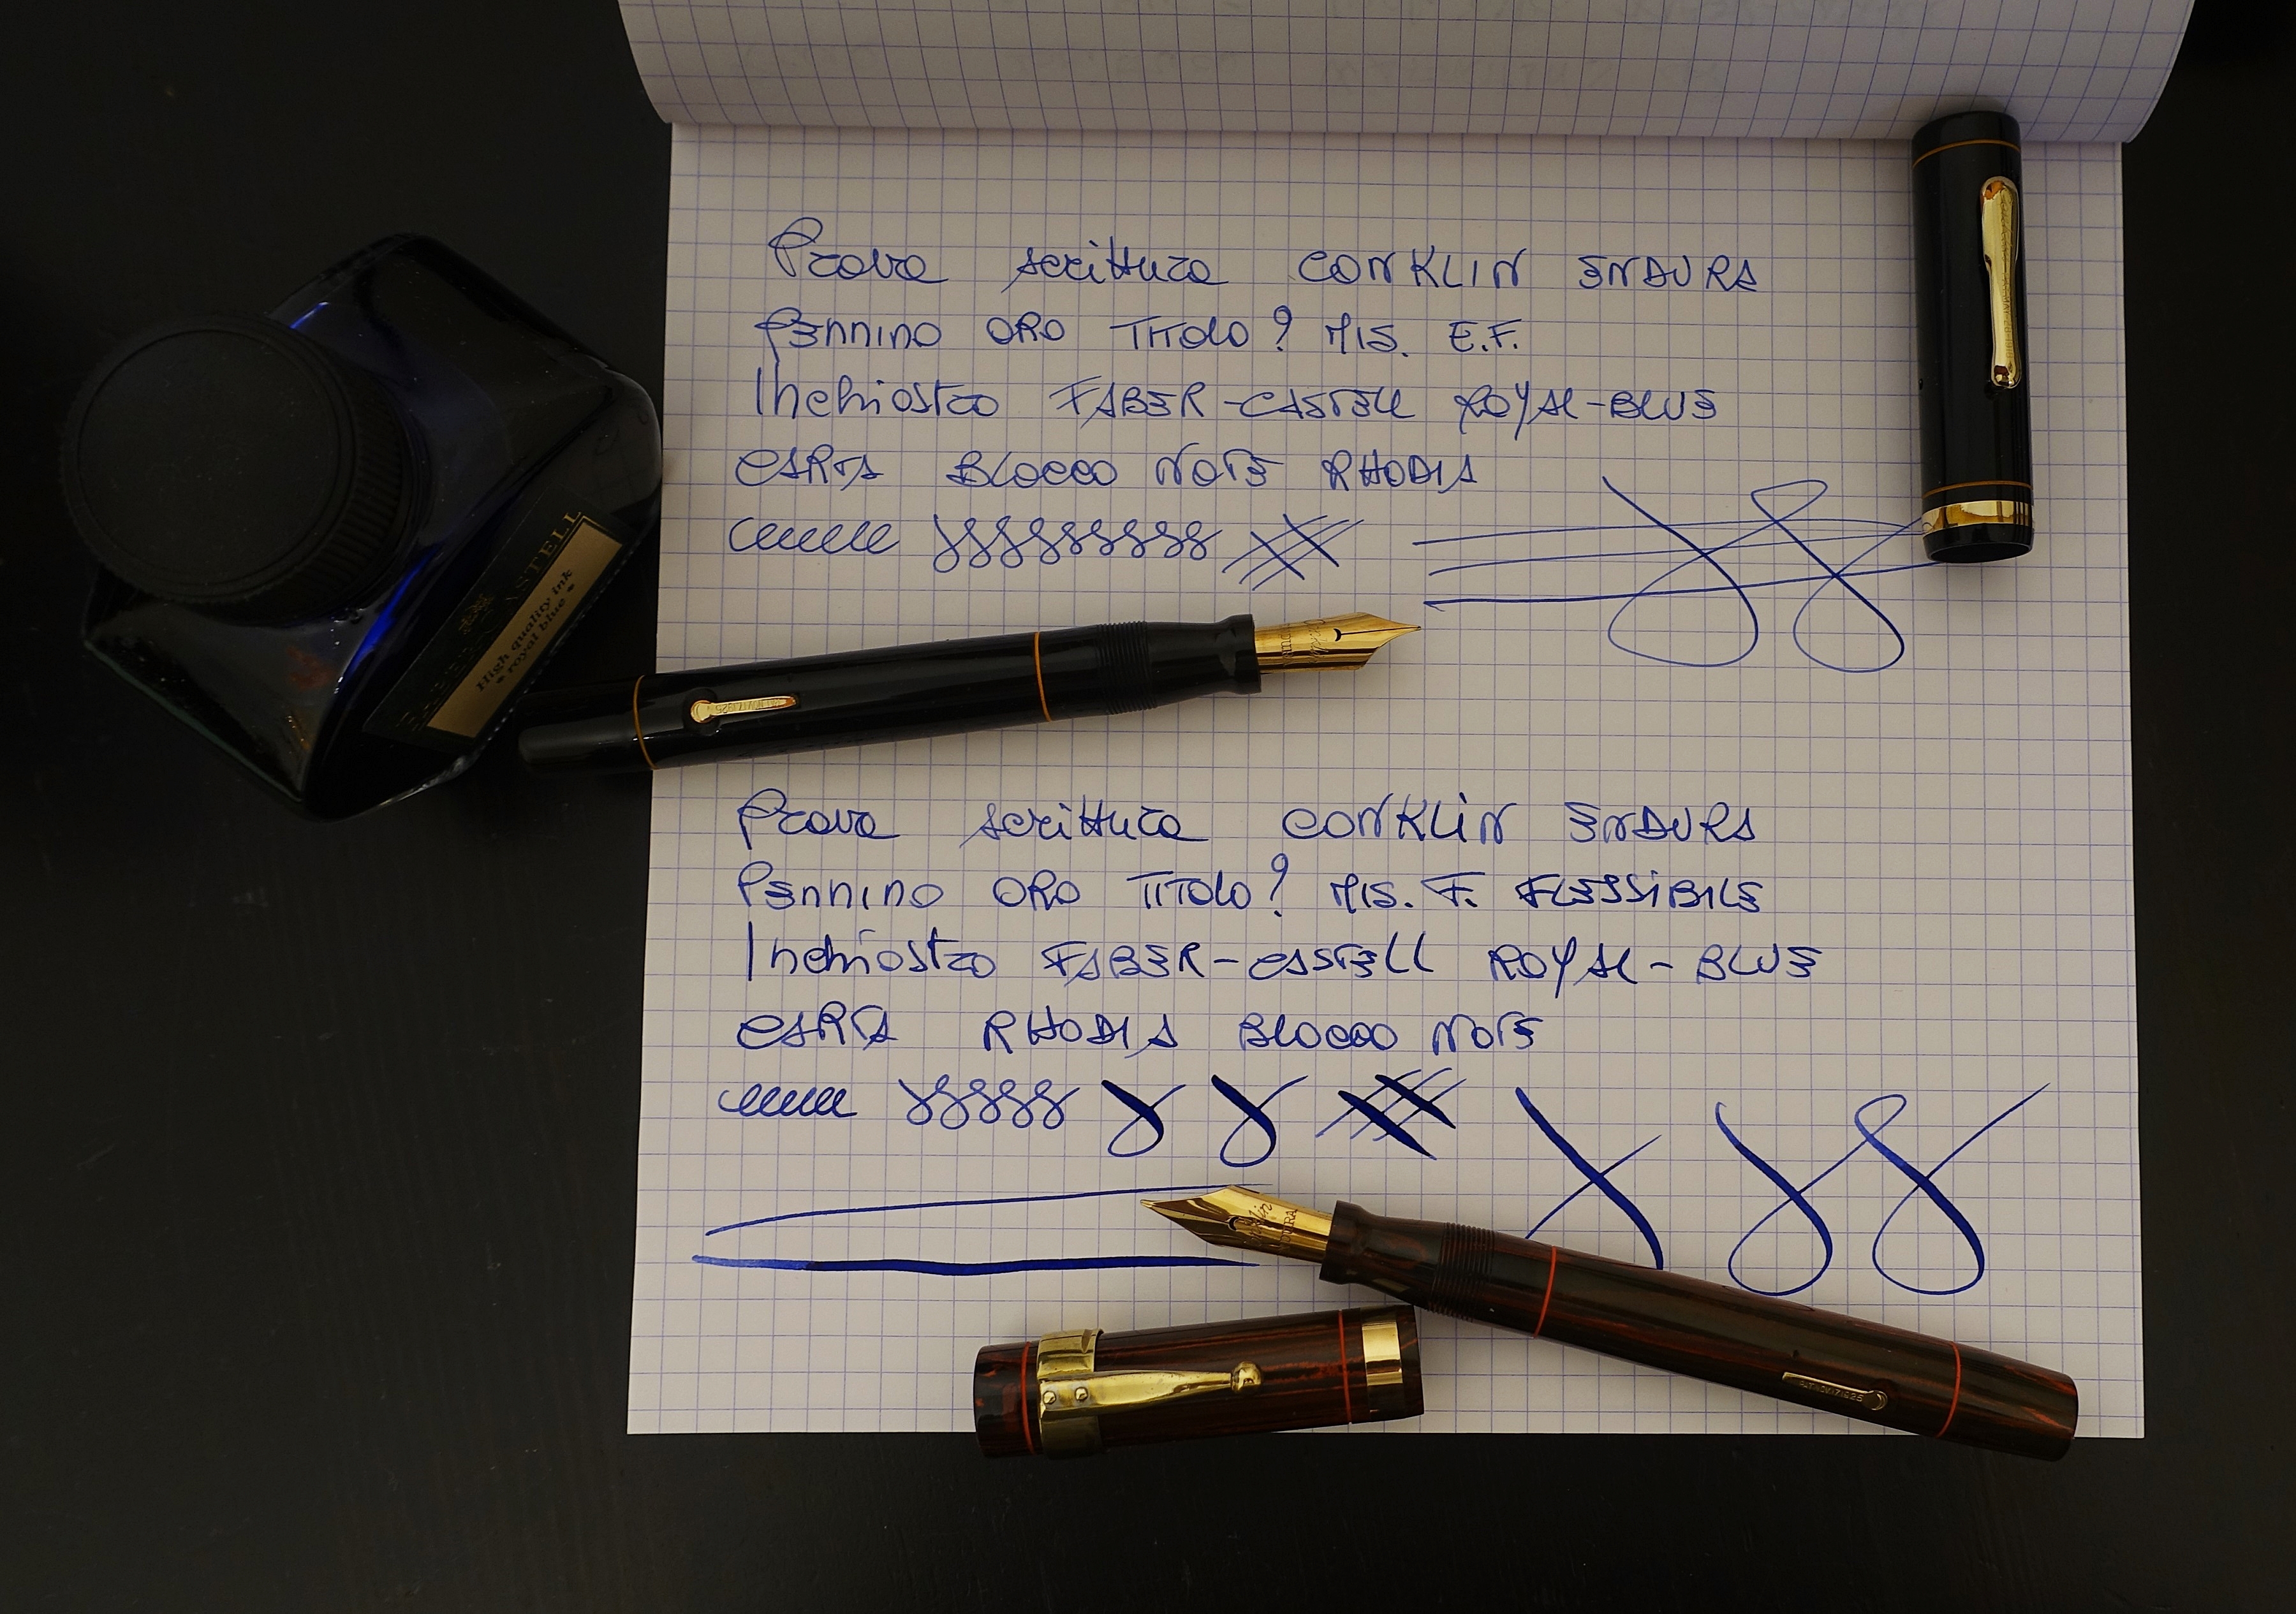 Prova scrittura CONKLIN ENDURA
PENNINO ORO TITOLO? MIS. E.F.
Inchiostro FABER-CASTELL ROYAL-BLUE
CARTA BLOCCO NOTE RHODIA
CASTELL
High quality ink
• royal blue •
Prova scrittura CONKLIN ENDURA
PENNINO ORO TITOLO? MIS. F. FLESSIBILE
Inchiostro FABER-CASTELL ROYAL-BLUE
CARTA RHODIA BLOCCO NOTE